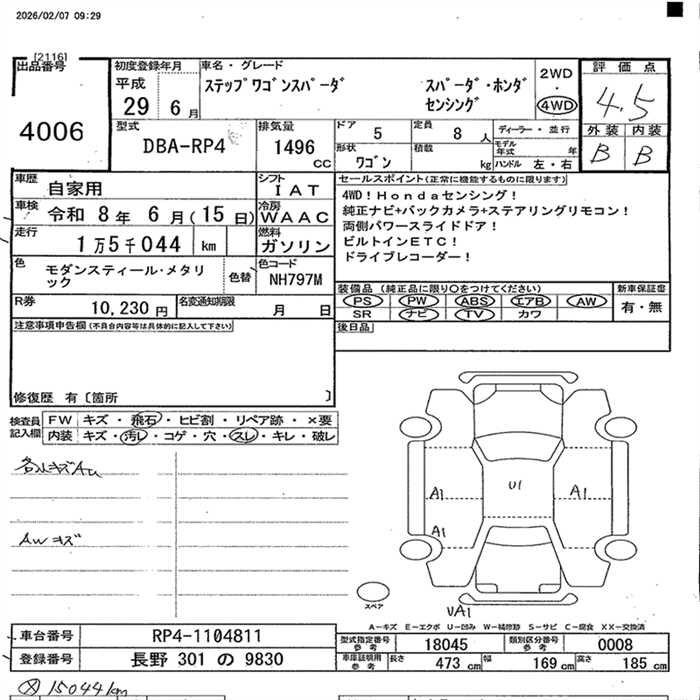 2026/02/07 09:29
[2116]
出品番号
4006
初度登録年月
平成
29 6月
車名・グレード
ステップワゴンスパーダ
スパーダ・ホンダ
センシング
2WD
・
4WD
評価点
4.5
外装 内装
B B
型式
DBA-RP4
排気量
1496
cc
ドア
5
定員
8人
ディーラー・並行
モデル年式 年
形状
ワゴン
積載
kg
ハンドル 左・右
車歴
自家用
シフト
IAT
車検
令和 8年 6月(15日)
冷房
WAAC
走行
1万5千044 km
燃料
ガソリン
色
モダンスティール・メタリ
ック
色替
色コード
NH797M
R券
10,230円
名変通知期限
月 日
セールスポイント(正常に機能するものに限ります)
4WD!Hondaセンシング!
純正ナビ+バックカメラ+ステアリングリモコン!
両側パワースライドドア!
ビルトインETC!
ドライブレコーダー!
装備品 (純正品に限り○をつけてください)
PS PW ABS エアB AW
SR ナビ TV カワ
新車保証書
有・無
後日品
注意事項申告欄(不具合内容等は具体的に記入して下さい)
修復歴 有〔箇所 〕
検査員
記入欄
FW キズ・飛石・ヒビ割・リペア跡・×要
内装 キズ・汚レ・コゲ・穴・スレ・キレ・破レ
各小キズAu
AWキズ
A1
U1
A1
A1
UA1
スペア
A-キズ E-エクボ U-凹み W-補修跡 S-サビ C-腐食 XX-交換済
車台番号
RP4-1104811
登録番号
長野 301 の 9830
型式指定番号
参考
18045
類別区分番号
参考
0008
車庫証明用
参考
長さ 473 cm 幅 169 cm 高さ 185 cm
15044km